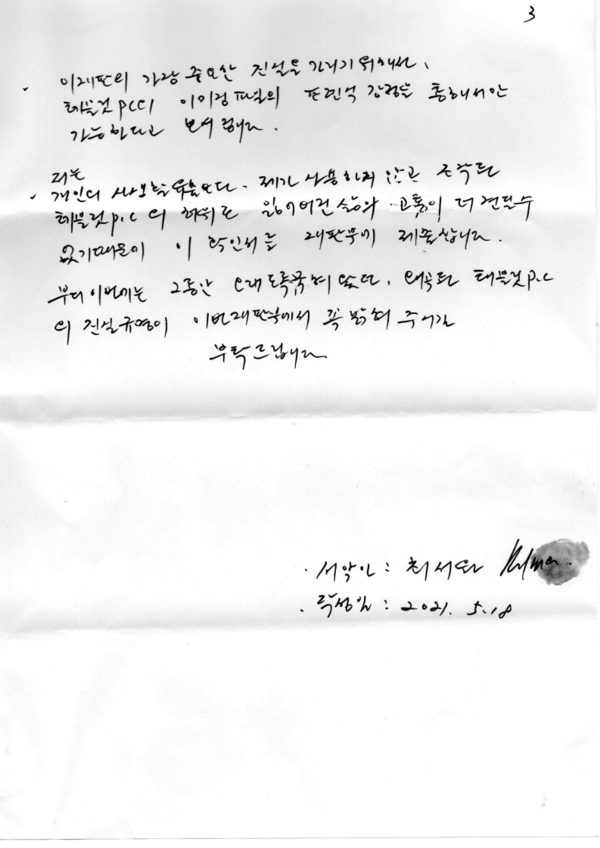 3
이 재판의 가장 중요한 진실을 가리기 위해서,
태블릿PC의 이미징파일의 전면적 감정을 통해서만
가능하다고 보여집니다.
저는
개인의 사용하지 않고 조작된
태블릿P.C의 허위로 잃어버린 삶의 고통이 더 견딜수
없기때문에 이 확인서를 재판부에 제출합니다.
부디 이번에는 그동안 오래도록 왜곡된 태블릿P.C
의 진실규명이 이번재판부에서 꼭 밝혀 주시길
부탁드립니다
서약인 : 최서원
작성일 : 2021. 5.18